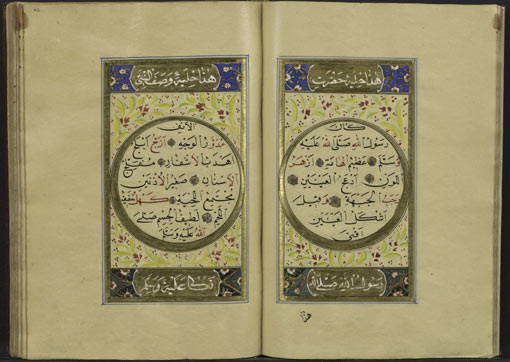 هذا حلية حضرت
كان
رسول الله صلى الله عليه
وسلم عظيم الهامة ازهر
اللون ادعج العينين
رحب الجبهة وقيل
اشكل العينين
اقنى
رسول الله صلى الله
هذا حلية وصف النبي
الانف
مدور الوجه ازج ابلج
اهدب الاشفار مفلج
الاسنان صغير الاذنين
مجتمع اللحية
لطيف الجسم صلى
الله عليه وسلم
تعالى عليه وسلم